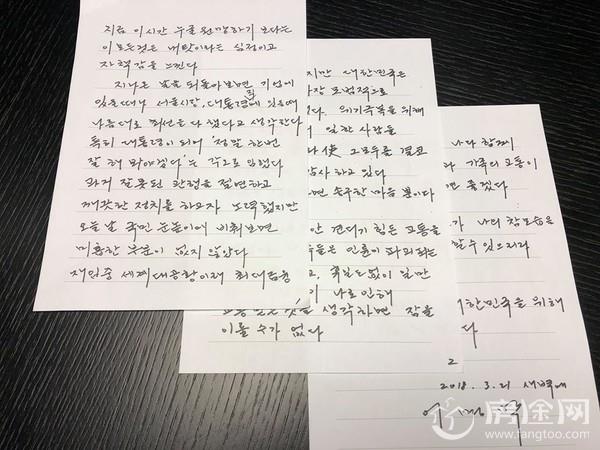 지금 이 시간 누굴 원망하기 보다는
이 모든것은 내 탓이라는 심정이고
자책감을 느낀다
지나온 날을 되돌아보면 기업에
있을때나 서울시장, 대통령직에 있을때
나름대로 최선을 다 했다고 생각한다
특히 대통령이 되어 "정말 한번
잘 해 봐야겠다"는 각오로 임했다
과거 잘못된 관행을 절연하고
깨끗한 정치를 하고자 노력했지만
오늘날 국민 눈높이에 비춰보면
미흡한 부분이 없지 않았다
재임중 세계대공황이래 최대 금융
지만 대한민국은
가장 모범적으로
다. 위기극복을 위해
이 일한 사람들
나 使 그 모두를 결코
감사하고 있다
면 송구한 마음 뿐이다
안 견디기 힘든 고통을
족들은 인륜이 파괴되는
고, 휴일도 없이 일만
이 나로 인해
것을 생각하면 잠을
이룰 수가 없다
나와 함께
가족의 고통이
면 좋겠다
가 나의 참모습을
할 수 있으리라
대한민국을 위해
다
2
2018. 3. 21 새벽에
이 명 박
房途网
www.fangtoo.com